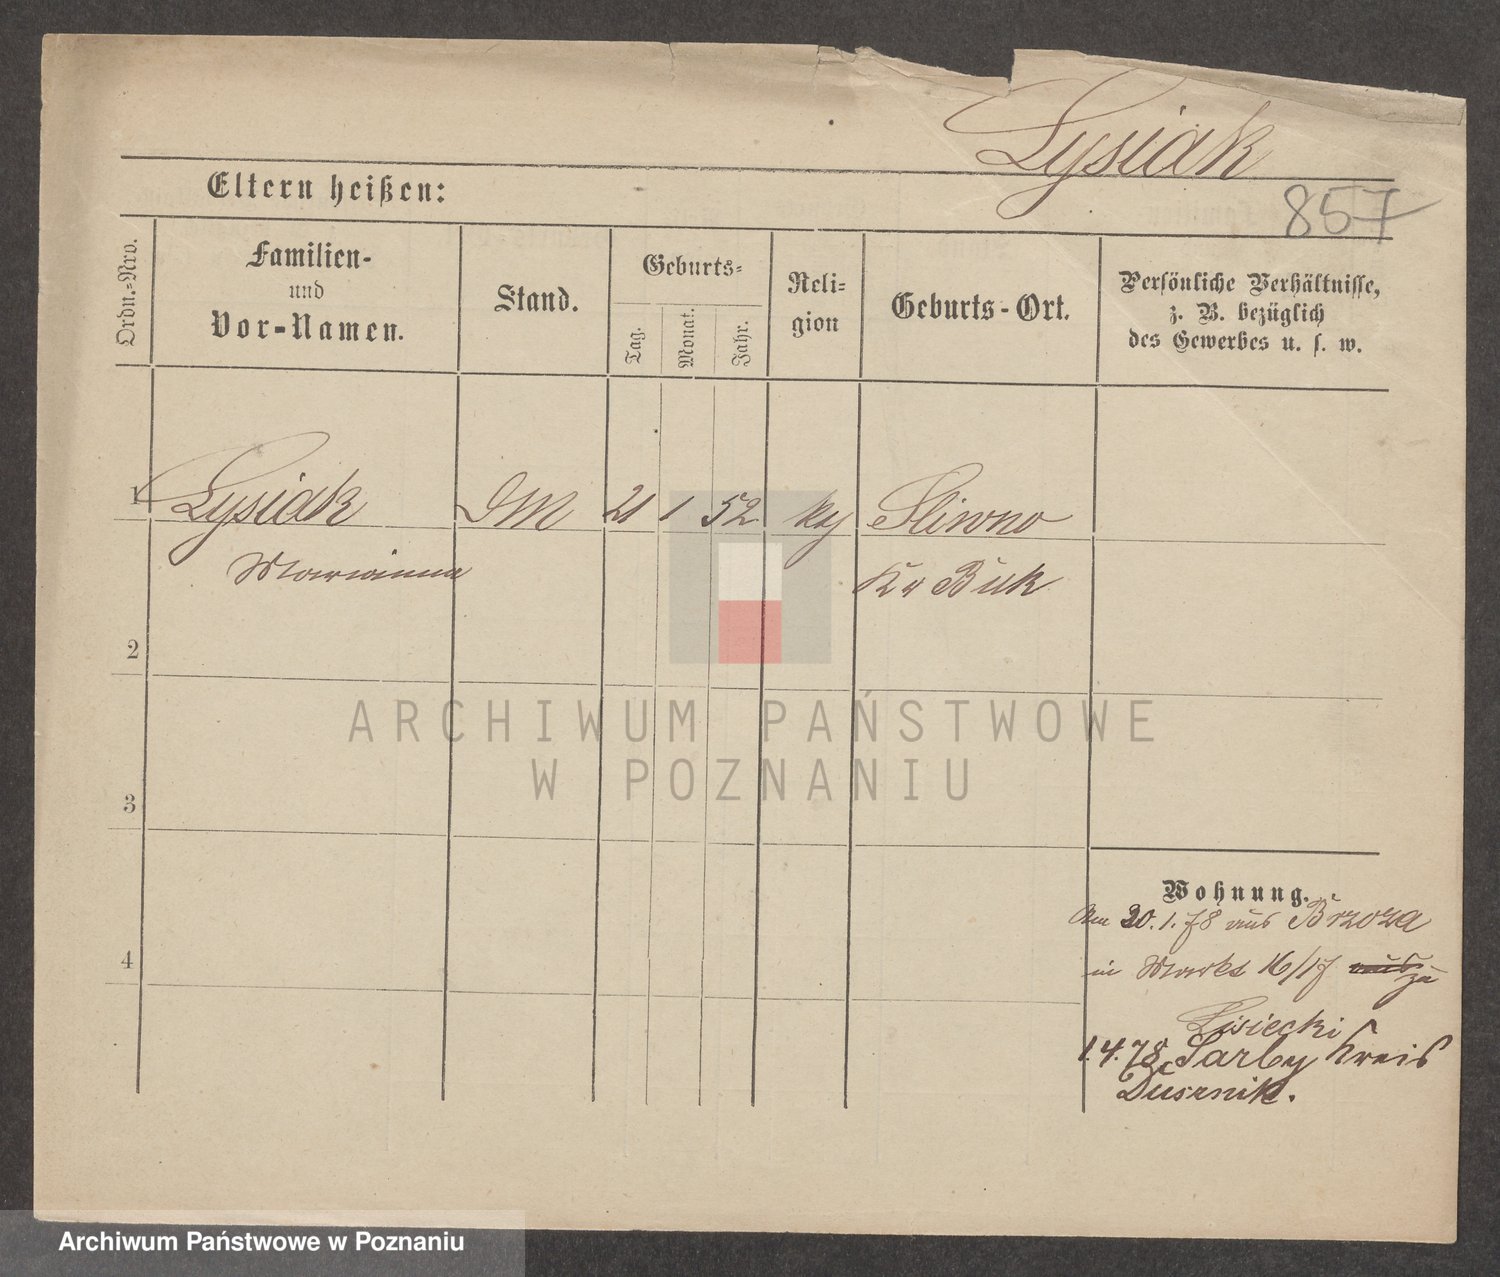 Lysiak
Eltern heißen:
857
Ordn.-Nro.
Familien-
und
Vor-Namen.
Stand.
Geburts-
Tag.
Monat.
Jahr.
Reli-
gion
Geburts-Ort.
Persönliche Verhältnisse,
z. B. bezüglich
des Gewerbes u. s. w.
1 Lysiak DM 21 1 52 kg Sliwno
Marianna Kr Buk
2
3
4
Wohnung.
Am 20.1.78 aus Brzoza
in Markt 16/17 zu
Lisiecki
1.4.78 Sarby Kreis
Dusznik.
ARCHIWUM PAŃSTWOWE
W POZNANIU
Archiwum Państwowe w Poznaniu